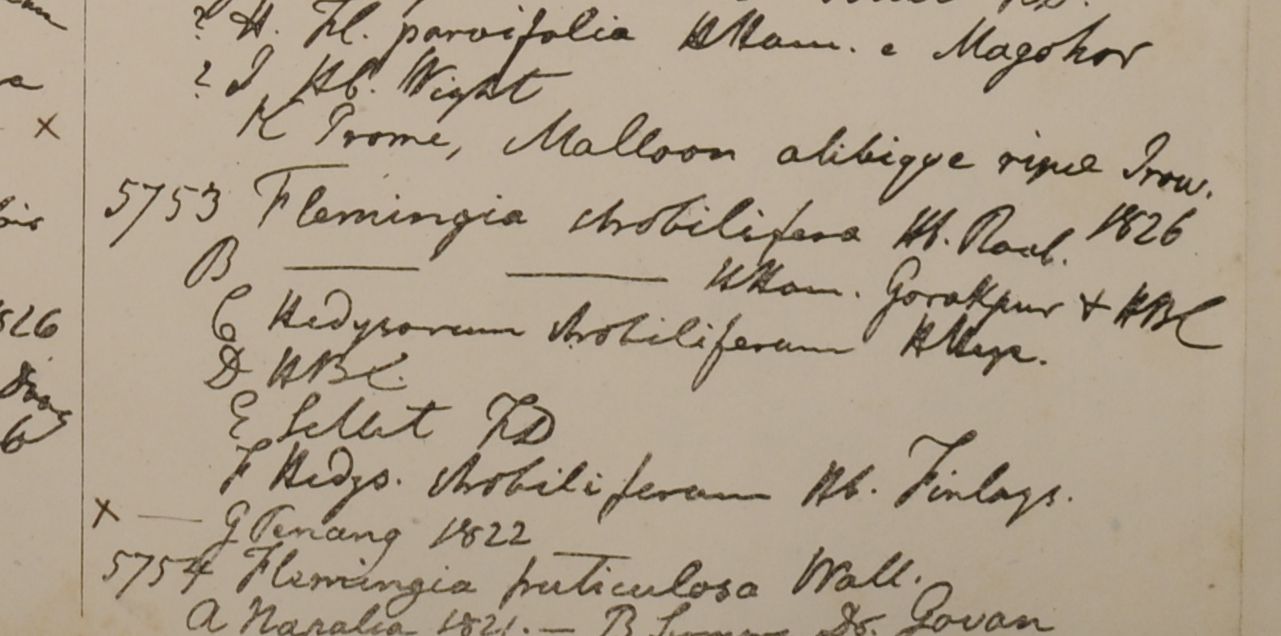 ? H. Fl. parvifolia HHam. e Magohor
? I Hb. Wight
K Prome, Malloon alibique ripæ Iraw. 1826
5753 Flemingia strobilifera Hb. Roxb.
B —— —— HHam. Gorakpur + HBC
C Hedysarum strobiliferum HHeyn.
D HBC.
E Sillet FD
F Hedys. strobiliferum Hb. Finlays.
× — G Penang 1822
5754 Flemingia fruticulosa Wall.
A Napalia 1821. — B Dr. Govan
a
×
826
6